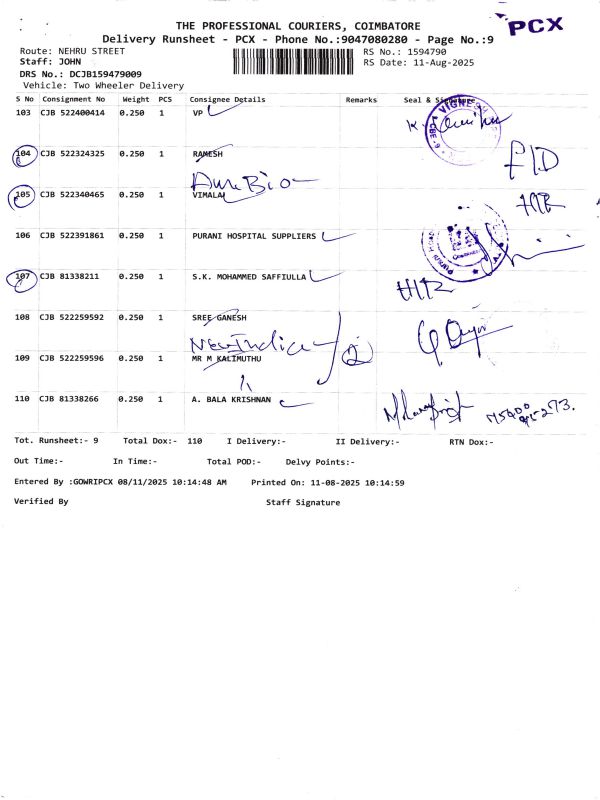 PCX
THE PROFESSIONAL COURIERS, COIMBATORE
Delivery Runsheet - PCX - Phone No.:9047080280 - Page No.:9
Route: NEHRU STREET
RS No.: 1594790
Staff: JOHN
RS Date: 11-Aug-2025
DRS No.: DCJB159479009
Vehicle: Two Wheeler Delivery
S No Consignment No Weight PCS Consignee Details Remarks Seal & Signature
103 CJB 522400414 0.250 1 VP
104 CJB 522324325 0.250 1 RAMESH
105 CJB 522340465 0.250 1 VIMALA
106 CJB 522391861 0.250 1 PURANI HOSPITAL SUPPLIERS
107 CJB 81338211 0.250 1 S.K. MOHAMMED SAFFIULLA
108 CJB 522259592 0.250 1 SREE GANESH
New India
109 CJB 522259596 0.250 1 MR M KALIMUTHU
110 CJB 81338266 0.250 1 A. BALA KRISHNAN
Tot. Runsheet:- 9 Total Dox:- 110 I Delivery:- II Delivery:- RTN Dox:-
Out Time:- In Time:- Total POD:- Delvy Points:-
Entered By :GOWRIPCX 08/11/2025 10:14:48 AM Printed On: 11-08-2025 10:14:59
Verified By Staff Signature